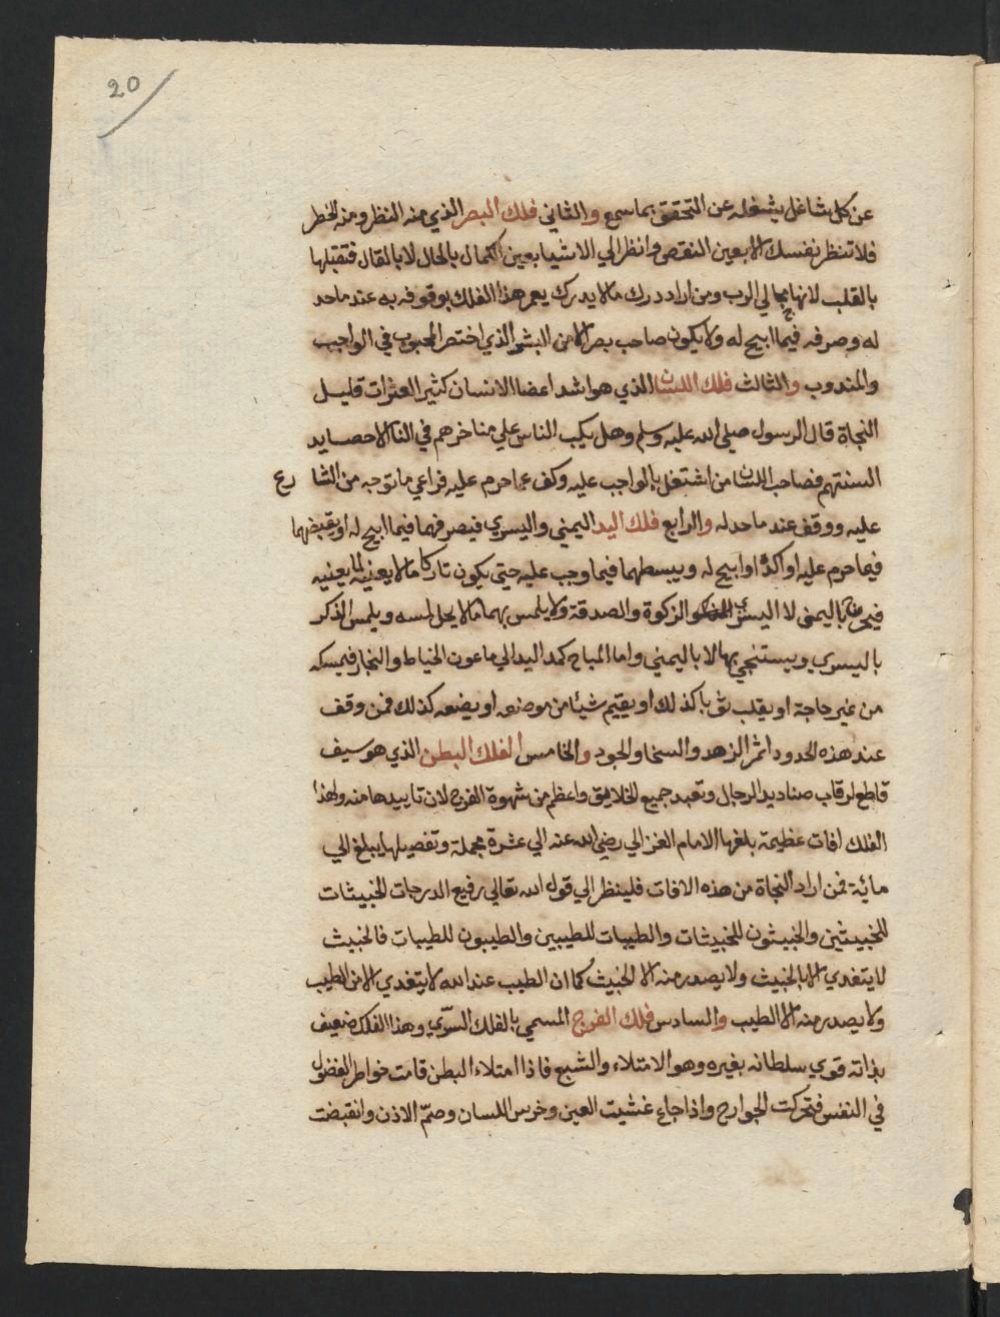 20
عن كل شاغل يشغله عن التحقق بما سمع والثاني فلك البصر الذي منه النظر ومنه الخطر
فلا تنظر نفسك الا بعين النقص وانظر الي الاشيا بعين الكمال بالحال لا بالمقال فتقبلها
بالقلب لانها مجالي الرب ومن اراد درك ما لا يدرك يعمر هذا الفلك بوقوفه به عند ما حد
له وصرفه فيما ابيح له ولا يكون صاحب بصر الا من البشر الذي اختصر المحبوب في الواجب
والمندوب والثالث فلك اللسان الذي هو اشد اعضا الانسان كثير العثرات قليل
النجاة قال الرسول صلي الله عليه وسلم وهل يكب الناس علي مناخرهم في النار الا حصايد
السنتهم فصاحب اللسان من اشتغل بالواجب عليه وكف عما حرم عليه فراعي ما توجه من الشارع
عليه ووقف عند ما حد له والرابع فلك اليد اليمني واليسري فيصرفهما فيما ابيح له او يقبضهما
فيما حرم عليه او اكد او ابيح له ويبسطهما فيما وجب عليه حتي يكون تاركا ما لا يعنيه لما يعنيه
باليمني لا اليسري الزكوة والصدقة ولا يلمس بهما ما لا يحل لمسه ويلمس الذكر
باليسري ويستنجي بها لا باليمني واما المباح كمد اليد الي ماعون الخياط والنجار فيمسكه
من غير حاجة او يقلب كذلك او يقيم شيئا من موضعه او يضعه كذلك فمن وقف
عند هذه الحدود اثمر الزهد والسخا والجود والخامس الفلك البطن الذي هو سيف
قاطع لرقاب صناديد الرجال وتعبد جميع الخلايق واعظم من شهوة الفرج لان تاييدها منه ولهذا
الفلك افات عظيمة بلغها الامام الغزالي رضي الله عنه الي عشرة مجملة وتفصيلها يبلغ الي
مائة فمن اراد النجاة من هذه الافات فلينظر الي قول الله تعالي رفيع الدرجات الخبيثات
للخبيثين والخبيثون للخبيثات والطيبات للطيبين والطيبون للطيبات فالخبيث
لا يتغدي الا بالخبيث ولا يصدر منه الا الخبيث كما ان الطيب عند الله لا يتغدي الا من الطيب
ولا يصدر منه الا الطيب والسادس فلك الفرج المسمي بالفلك السري وهذا الفلك ضعيف
بذاته قوي سلطانه بغيره وهو الامتلاء والشبع فاذا امتلاء البطن قامت خواطر الفضول
في النفس فتحركت الجوارح واذا جاع غشيت العين وخرس اللسان وصمّ الاذن وانقبضت